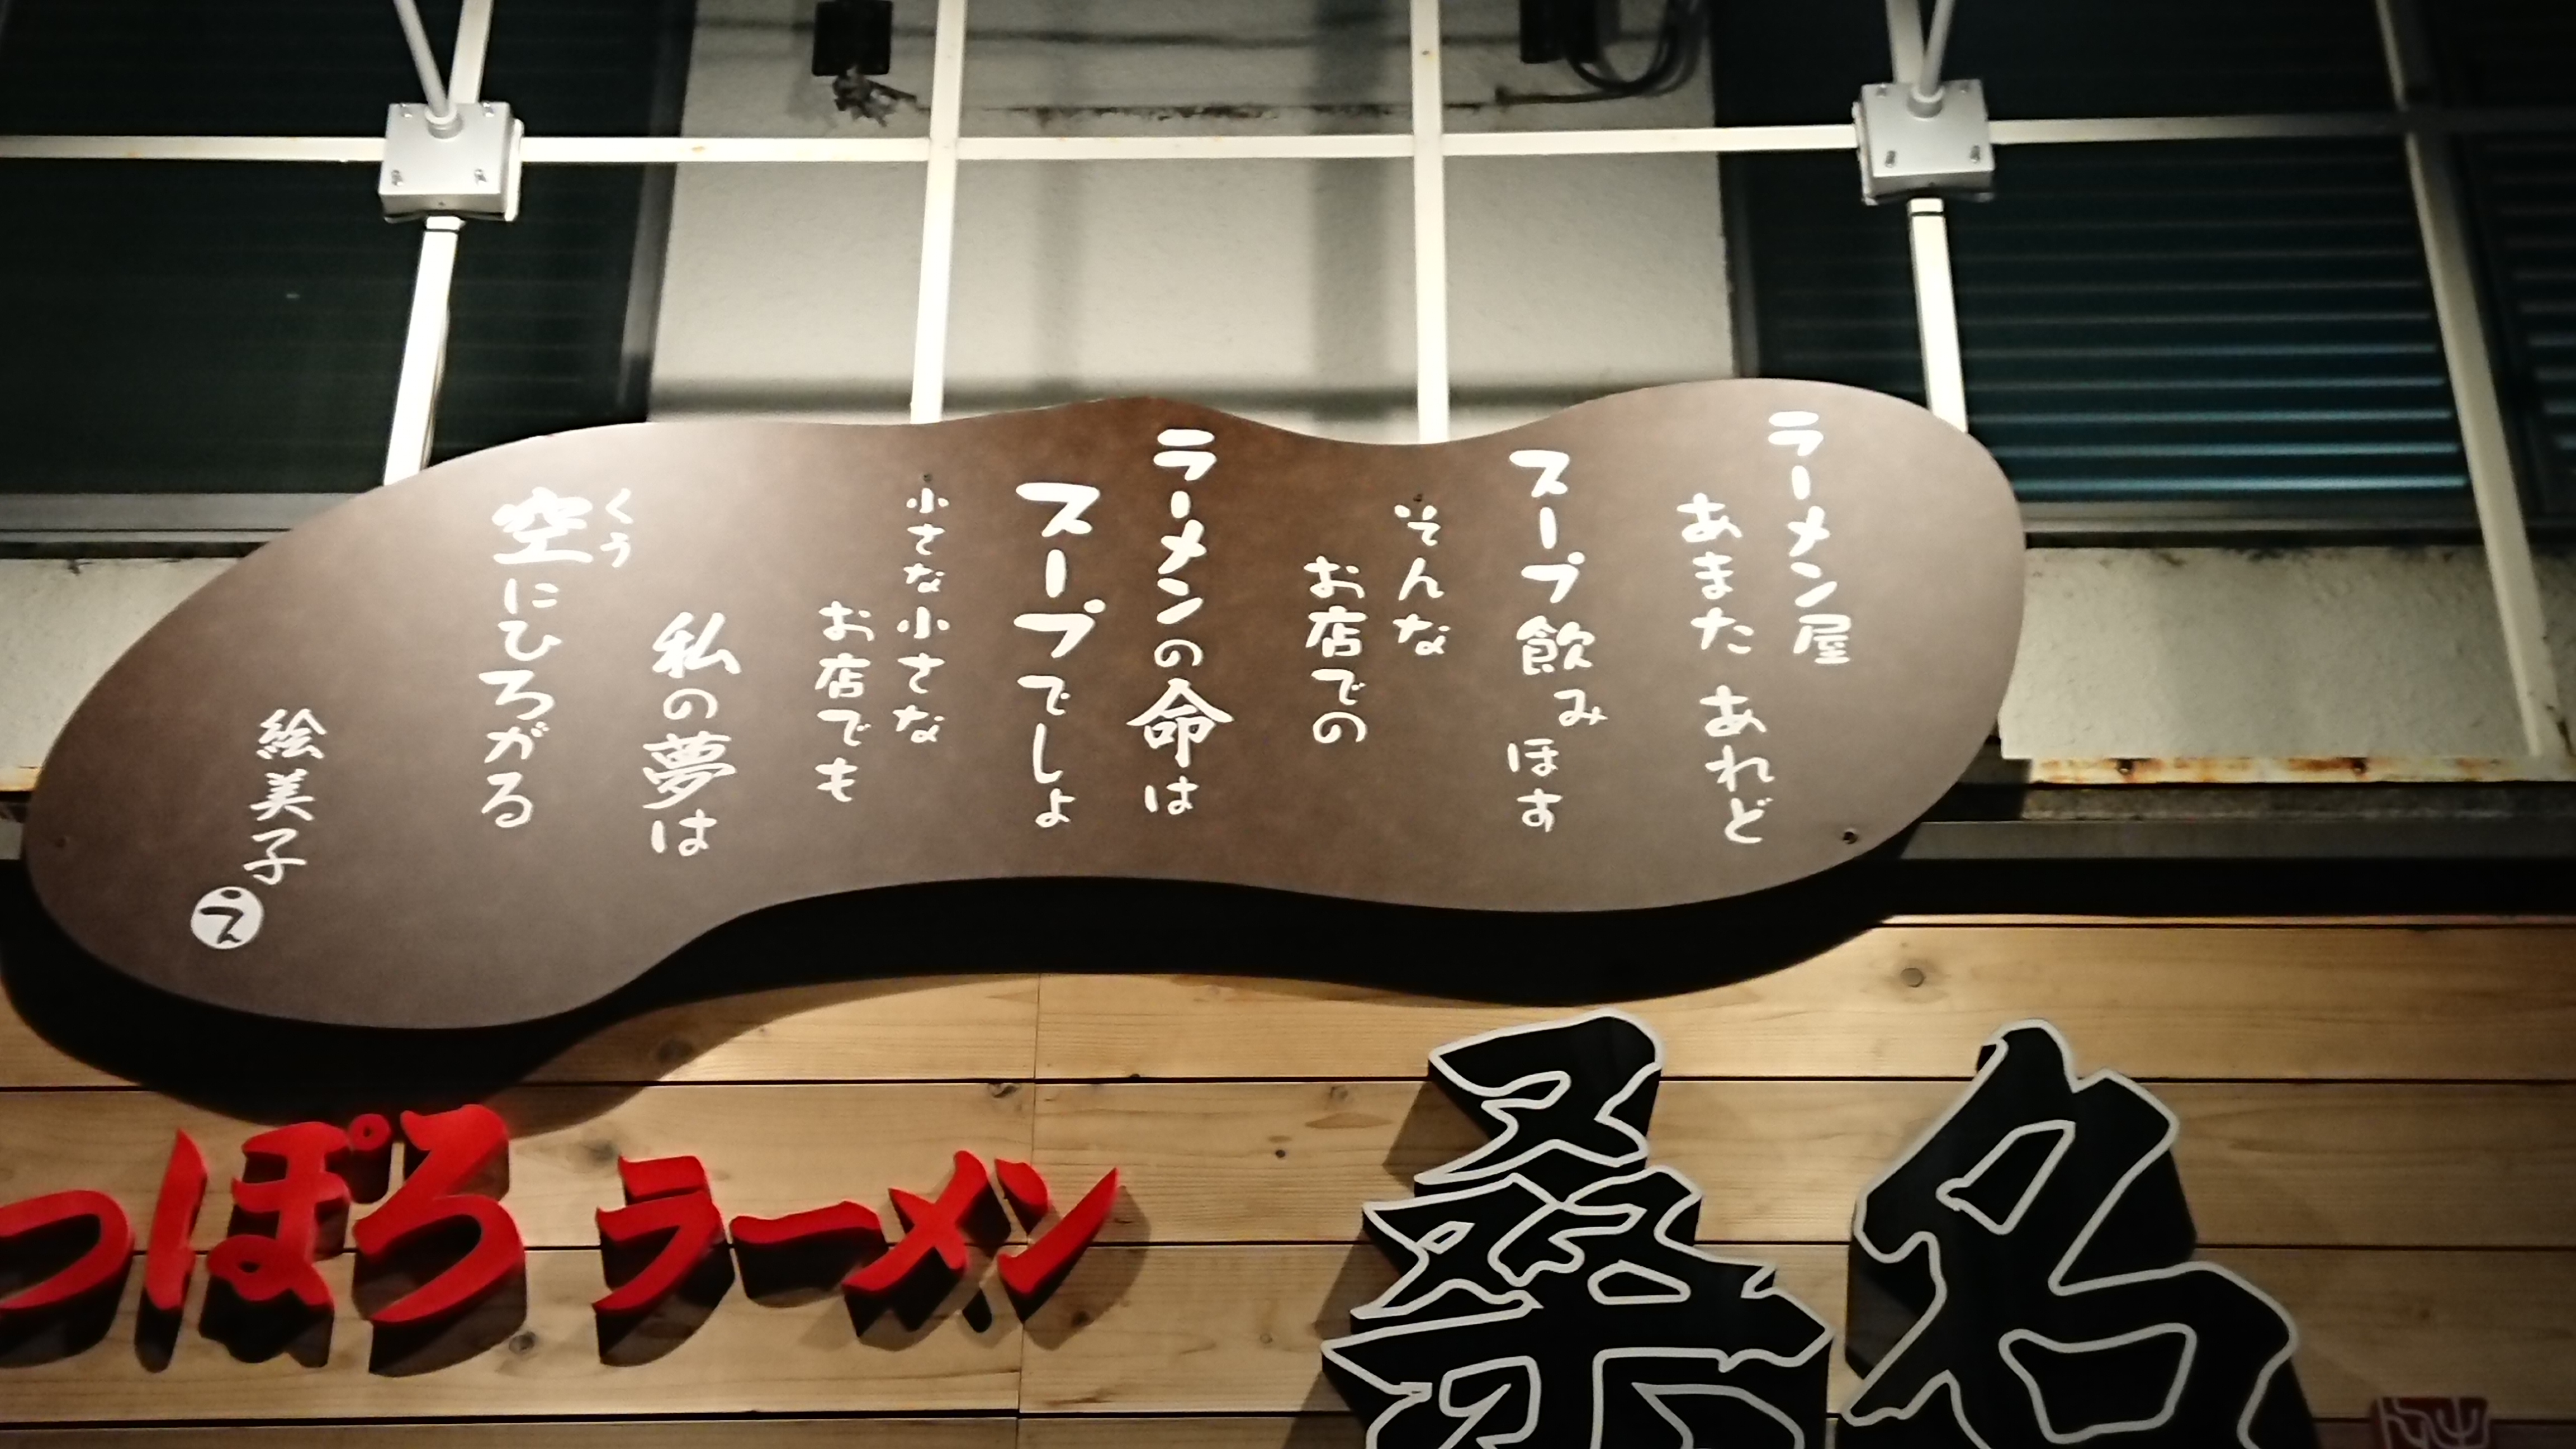 ラーメン屋
あまた あれど
スープ飲みほす
そんな
お店での
ラーメンの命は
スープでしょ
小さな小さな
お店でも
私の夢は
くう
空にひろがる
絵美子
え
っぽろラーメン
桑名